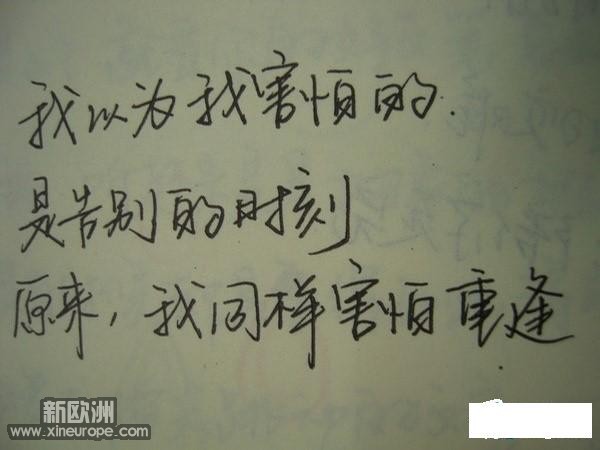 我以为我害怕的.
是告别的时刻
原来，我同样害怕重逢
新欧洲
www.xineurope.com